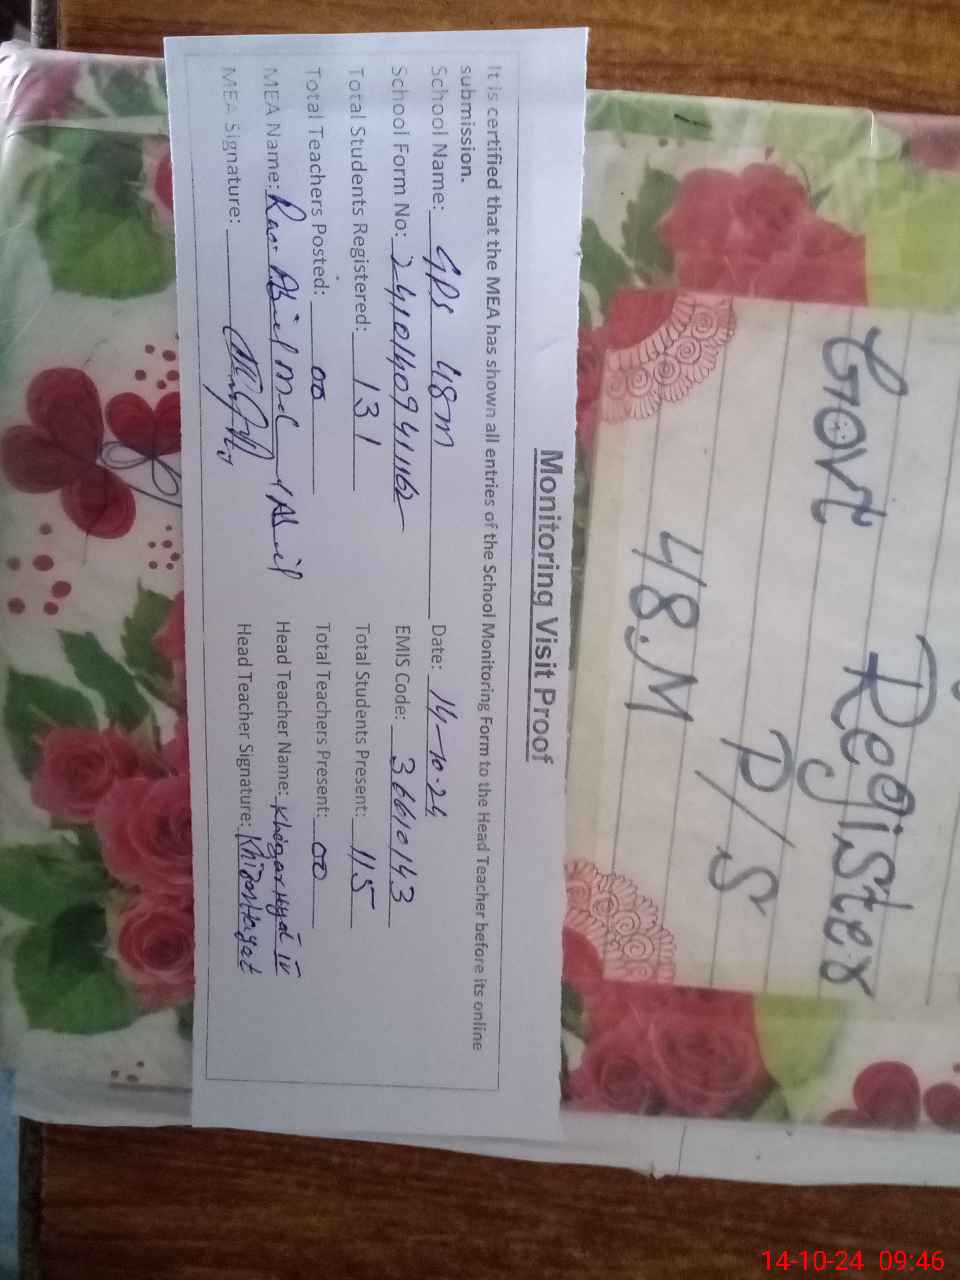 Register
Govt P/S
48.M
Monitoring Visit Proof
It is certified that the MEA has shown all entries of the School Monitoring Form to the Head Teacher before its online
submission.
School Name: GPS 48M Date: 14-10-24
School Form No: 241014094162 EMIS Code: 36610143
Total Students Registered: 131 Total Students Present: 115
Total Teachers Posted: 00 Total Teachers Present: 00
MEA Name: Rao Head Teacher Name:
MEA Signature: Head Teacher Signature: Hayat
14-10-24 09:46